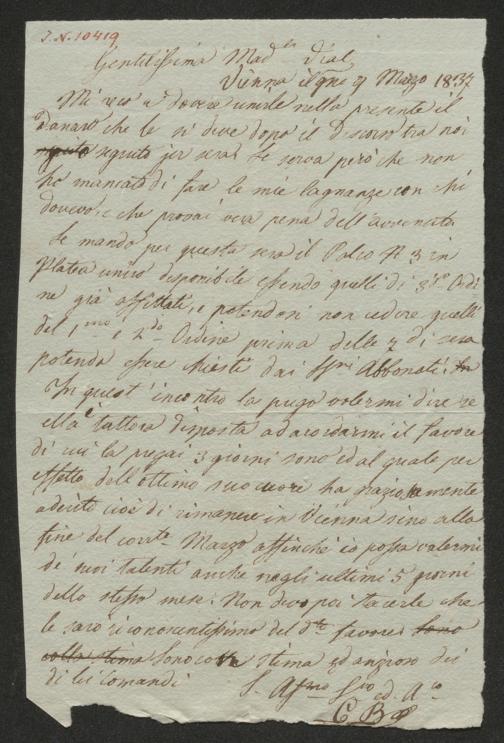 I.N. 10419
Gentilissima Mad.lle Dial
Vienna il 9 Marzo 1837
Mi reco a dovere unirle nella presente il
danaro che le si deve dopo il discorso tra noi
seguito jer sera. Le serva però che non
ho mancato di fare le mie lagnanze con chi
dovevo, e che provai vera pena dell'avvenuto.
Le mando per questa sera il Palco N 3 in
Platea unico disponibile essendo quelli di 3zo Ordi
ne già affittati, e potendosi non cedere quelli
del 1mo e 2do Ordine prima delle 2 di sera
potendo essere chiesti dai Abbonati.
In quest'incontro la prego volermi dire se
ella è tuttora disposta ad accordarmi il favore
di cui la pregai 3 giorni sono ed al quale per
effetto dell'ottimo suo cuore ha graziosamente
aderito cioè di rimanere in Vienna sino alla
fine del corrte Marzo affinché io possa valermi
de' suoi talenti anche negli ultimi 5 giorni
dello stesso mese. Non devo poi tacerle che
le sarò riconoscentissimo del dto favore. Sono
colla stima Sono con stima ed anzioso dei
di lei Comandi
S. Affmo Svo ed. Aco
C B